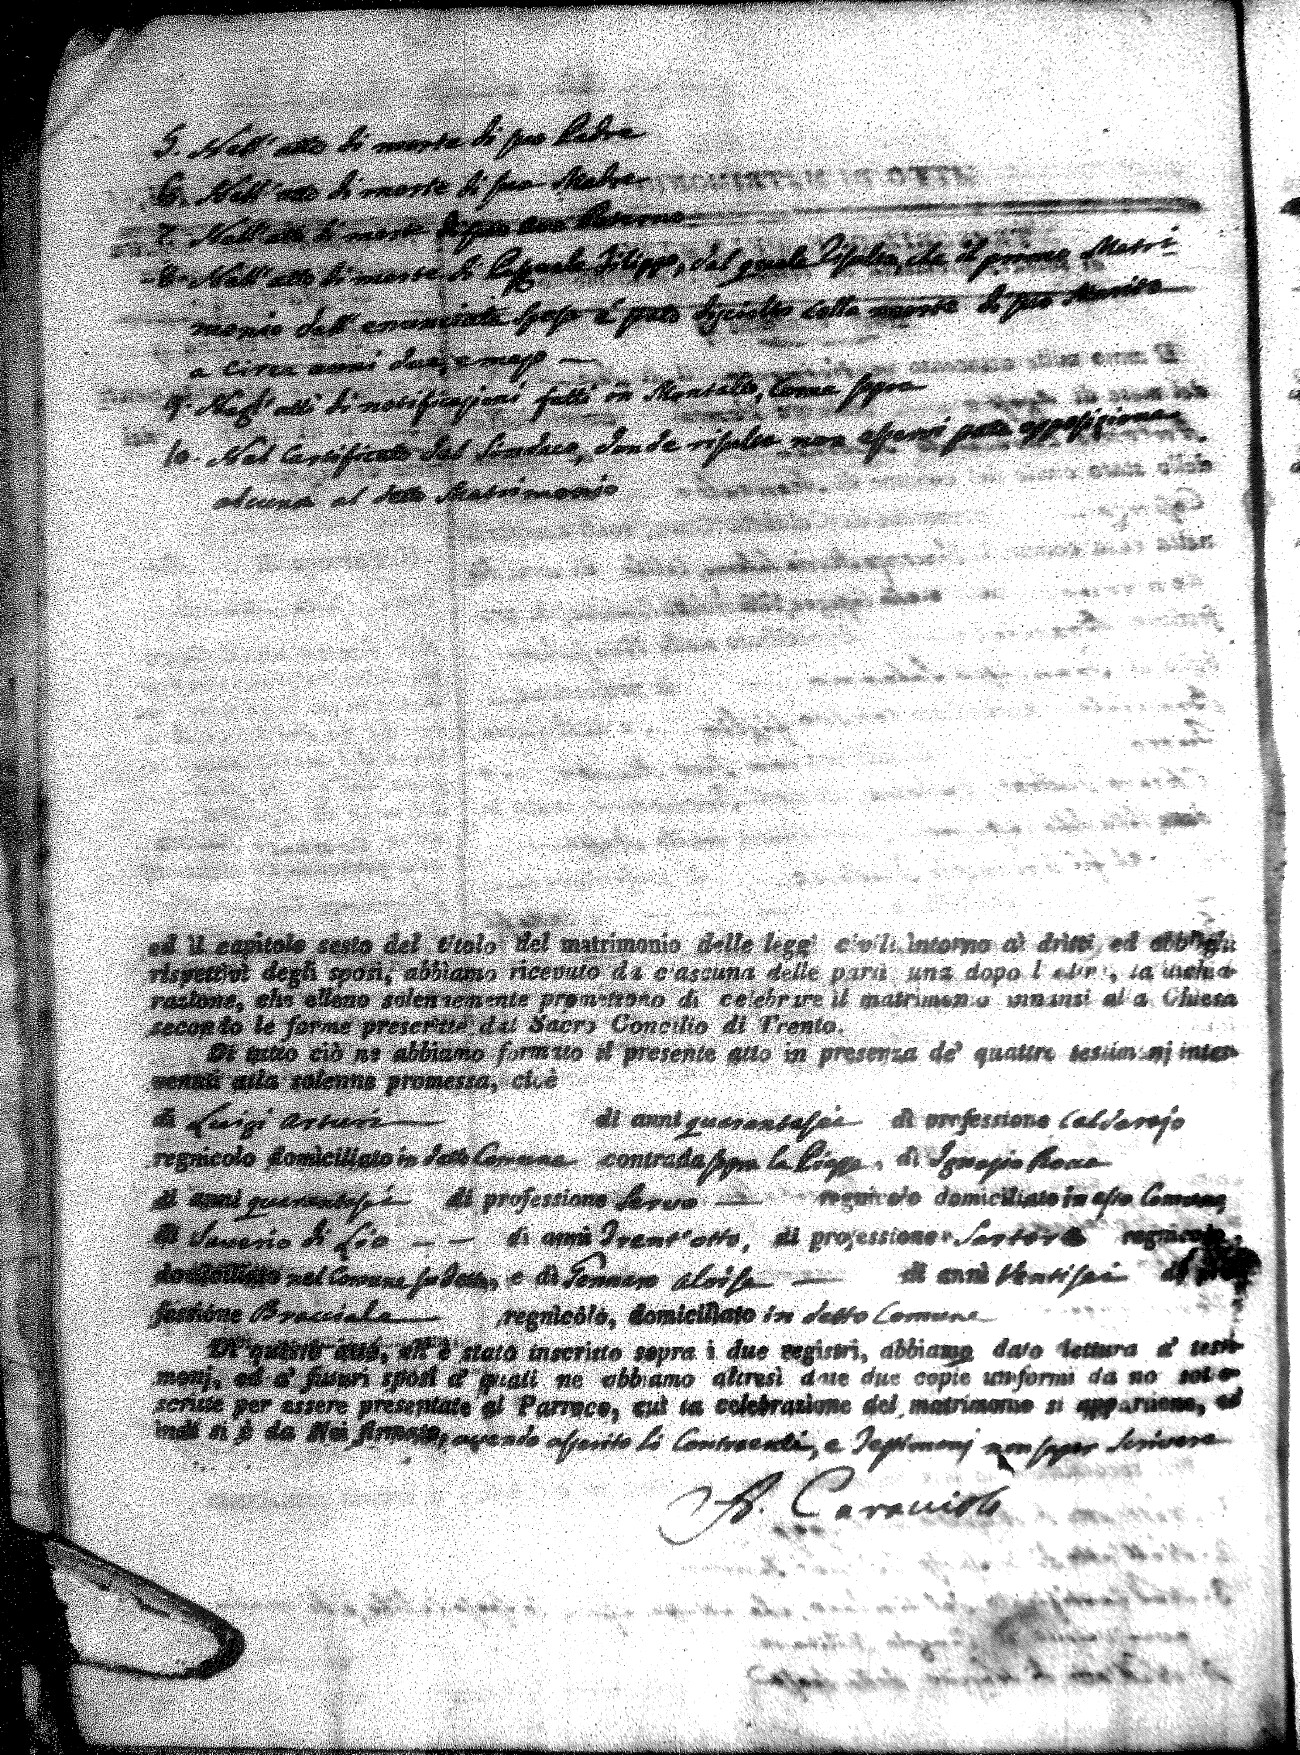 5. Nell'atto di morte di suo Padre
6. Nell'atto di morte di sua Madre
7. Nell'atto di morte di suo Avo Paterno
8. Nell'atto di morte di Pasquale Filippo, dal quale risulta, che il primo Matri-
monio dell'enunciata sposa è stato disciolto colla morte di suo Marito
a circa anni due, e mesi
9. Negl'atti di notificazioni fatti in Montalto, come sopra
10. Nel Certificato del Sindaco, donde risulta non essersi fatta opposizione
alcuna al detto Matrimonio
ed il capitolo sesto del titolo del matrimonio delle leggi civili intorno ai dritti, ed obblighi
rispettivi degli sposi, abbiamo ricevuto da ciascuna delle parti una dopo l'altra, la dichia-
razione, che elleno solennemente promettono di celebrare il matrimonio innanzi alla Chiesa
secondo le forme prescritte dal Sacro Concilio di Trento.
Di tutto ciò ne abbiamo formato il presente atto in presenza de' quattro testimonj inter-
venuti alla solenne promessa, cioè
di Luigi Arturi di anni quarantasei di professione Caldarajo
regnicolo domiciliato in detto Comune contrada sopra la Piazza, di Ignazio Rocca
di anni quarantasei di professione Servo regnicolo domiciliato in esso Comune,
di Saverio di Lio di anni Trent'otto, di professione Sartore regnicolo,
domiciliato nel Comune suddetto, e di Gennaro Aloise di anni Ventisei di pro-
fessione Bracciale regnicolo, domiciliato in detto Comune
Di questo atto, ch'è stato inscritto sopra i due registri, abbiamo dato lettura a' testi-
monj, ed a' futuri sposi a' quali ne abbiamo altresì date due copie uniformi da noi sotto-
scritte per essere presentate al Parroco, cui la celebrazione del matrimonio si appartiene, ed
indi si è da Noi firmato, avendo asserito li Contraenti, e Testimonj non saper scrivere
Caravioli